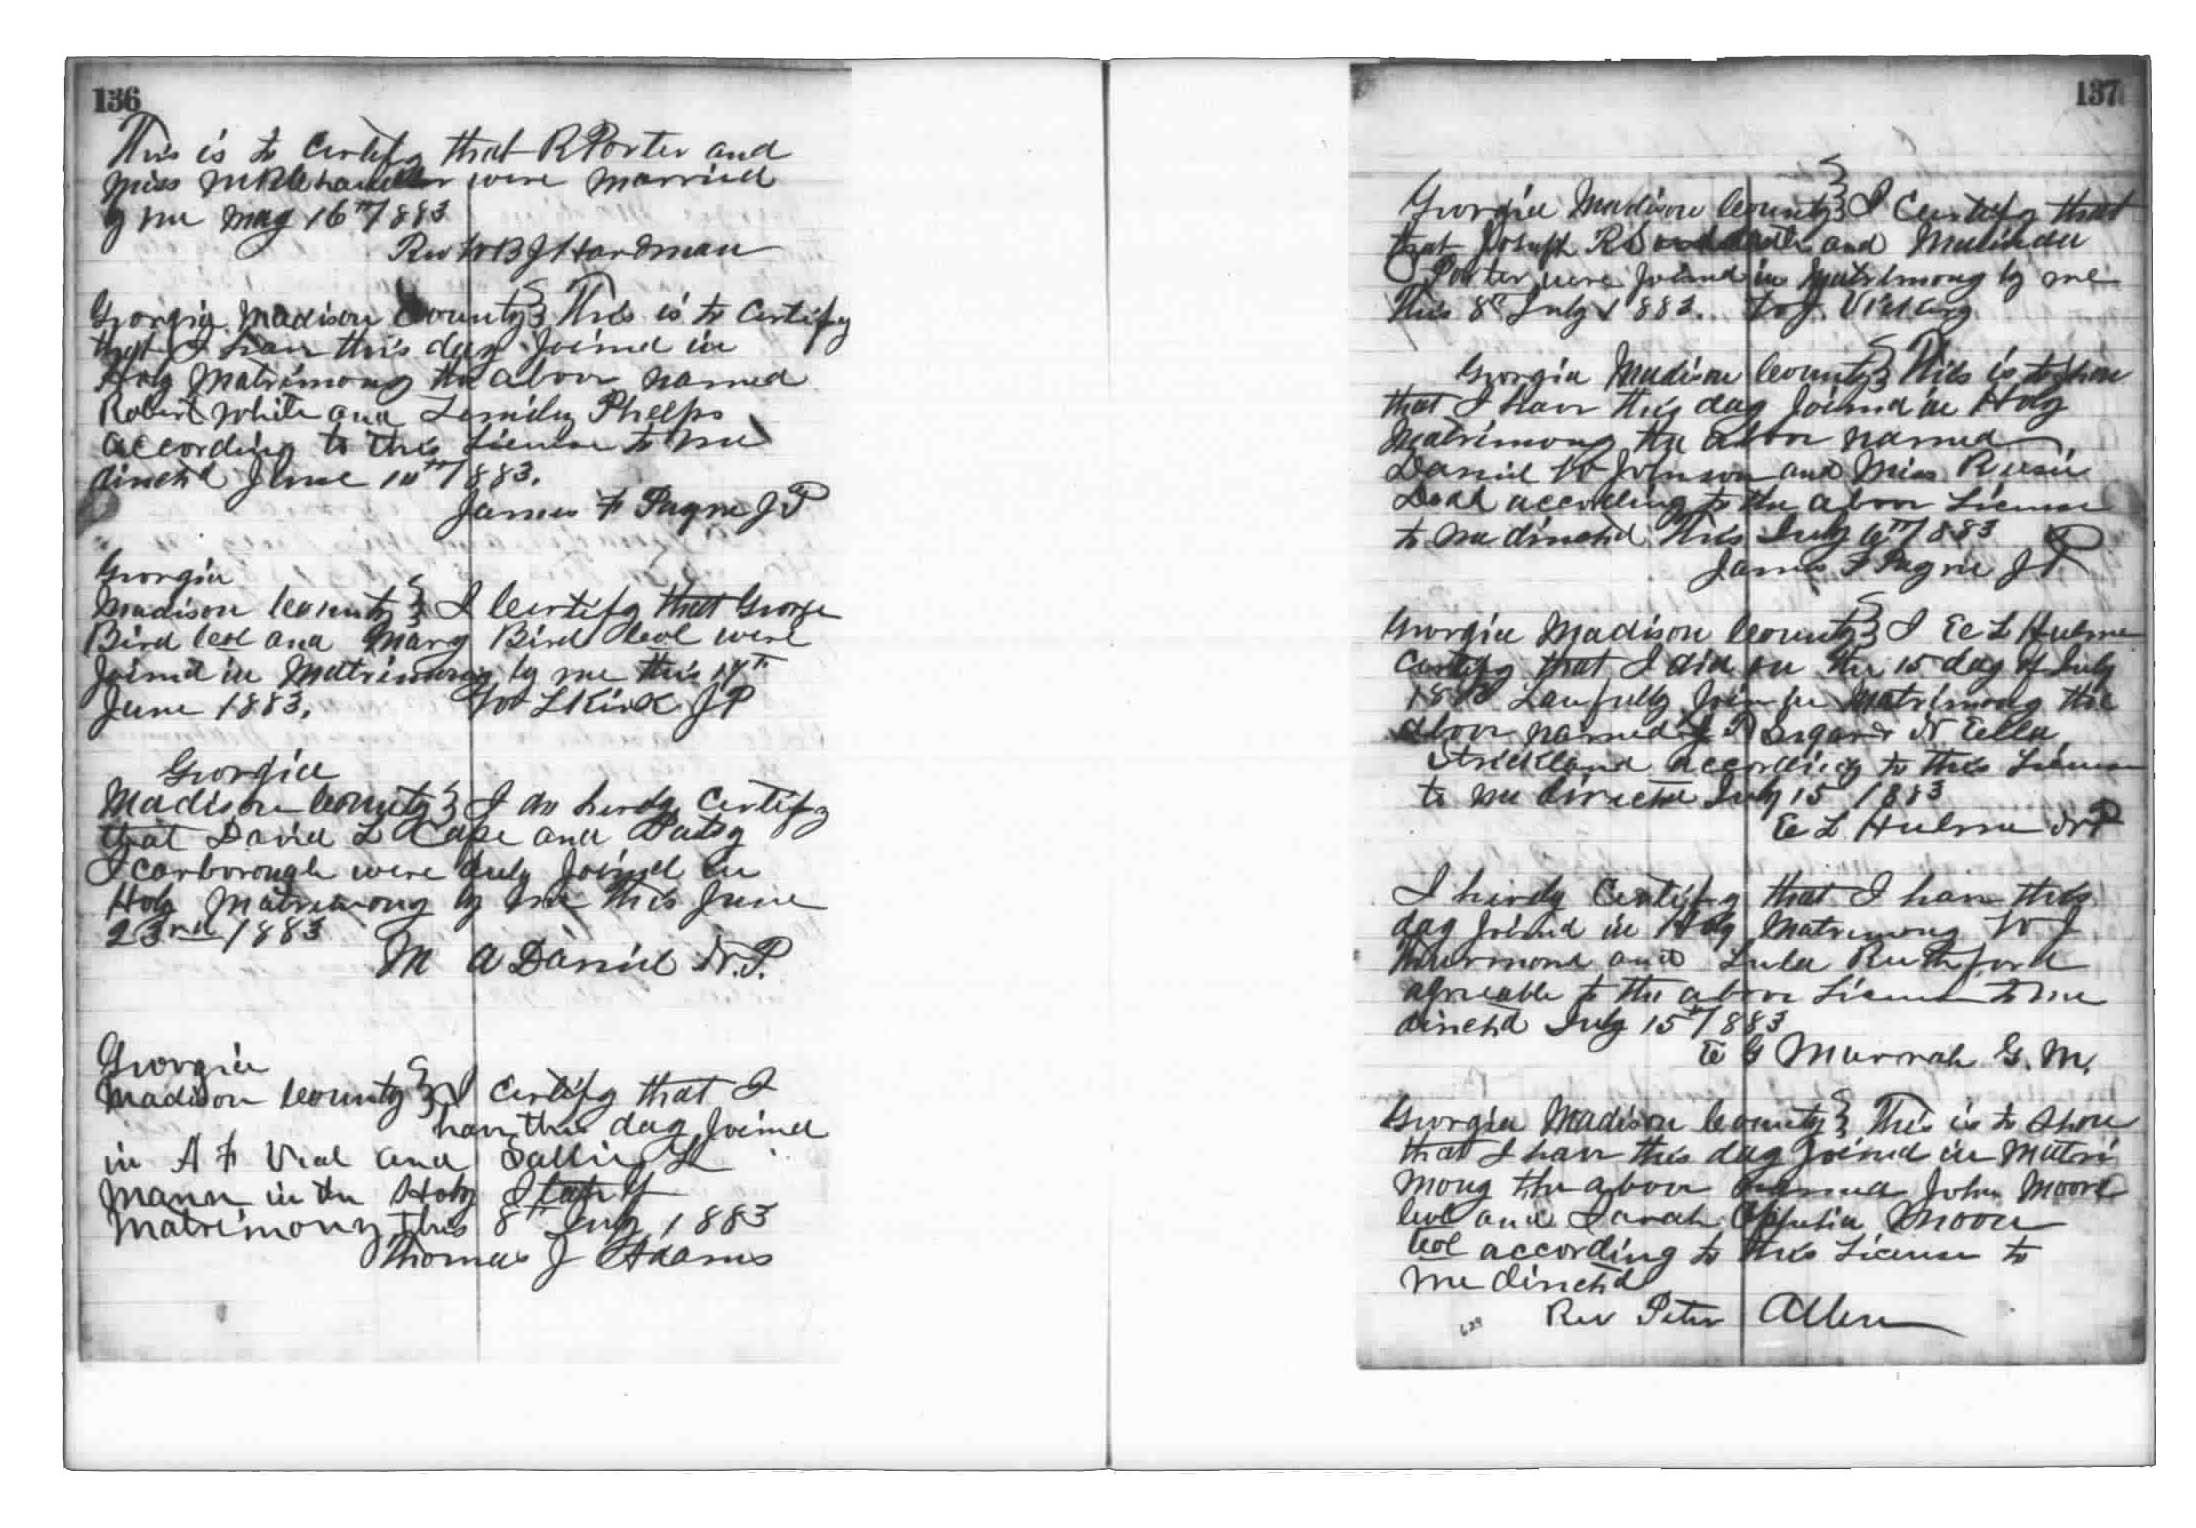 136
This is to Certify that R Porter and
Miss were married
by me May 16th 1883
Rev W B J Hardman
Georgia Madison County This is to Certify
that I have this day Joined in
Holy Matrimony the above named
Robert White and Phelps
according to this License to me
directed June 10th 1883.
James F Pagne J P
Georgia
Madison County I Certify that George
Bird Col and Mary Bird Col were
Joined in Matrimony by me this 17th
June 1883. W L Kirk J P
Georgia
Madison County I do herby Certify
that David L Cape and Patsy
Scarborough were duly Joined in
Holy Matrimony by me this June
23rd 1883
M A Daniel N.P.
Georgia
Madison County I Certify that I
have this day Joined
in A F Vial and Sallie
Mann in the Holy State of
Matrimony this 8th July 1883
Thomas J Adams
137
Georgia Madison County I Certify that
that Joseph R and Malinda
Porter were Joined in Matrimony by me
This 8th July 1883. W J.
Georgia Madison County This is to Show
that I have this day Joined in Holy
Matrimony the above named
Daniel W Johnson and Miss
according to the above License
to me directed This July 6th 1883
James F Pagne J P
Georgia Madison County I E L Hulme
Certify that I did on the 15 day of July
Lawfully Join in Matrimony the
above named Ella
Strickland according to this License
to me directed July 15 1883
E L Hulme N P
I herby Certify that I have this
day Joined in Holy Matrimony W J
Thurmond and Lula Rutherford
agreeable to the above License to me
directed July 15th 1883
E G Murrah G. M.
Georgia Madison County This is to Show
that I have this day Joined in Matri
mony the above named John Moore
Col and Sarah Moon
Col according to this License to
me directed
Rev Peter Allen
629